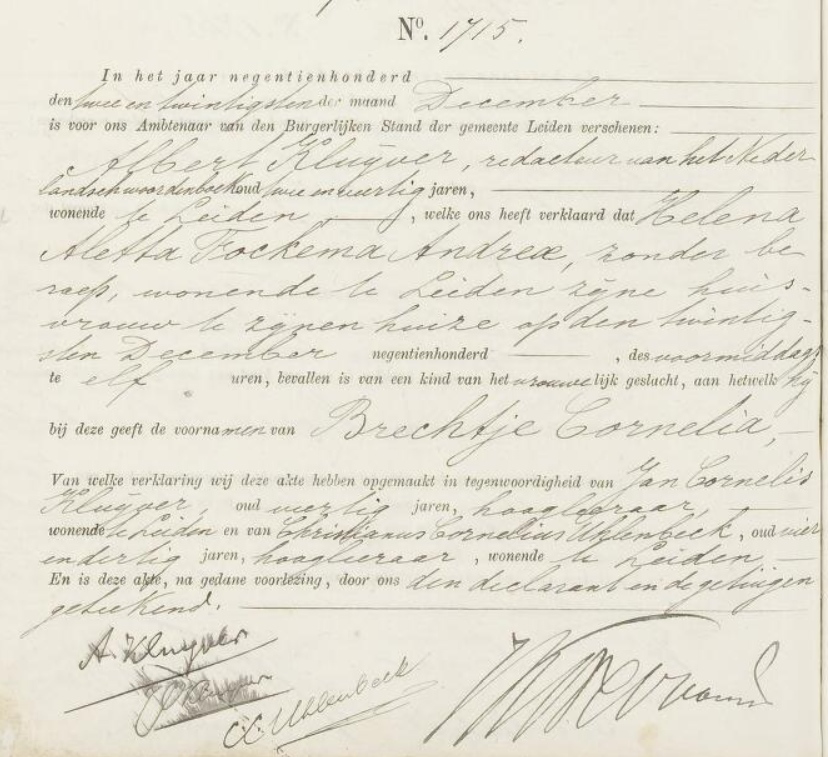 No. 1715.
In het jaar negentienhonderd
den twee en twintigsten der maand December
is voor ons Ambtenaar van den Burgerlijken Stand der gemeente Leiden verschenen:
Albert Kluyver, redacteur van het Neder
landsch woordenboek oud twee en veertig jaren,
wonende te Leiden, welke ons heeft verklaard dat Helena
Aletta Fockema Andreæ, zonder be
roep, wonende te Leiden zijne huis-
vrouw te zijnen huize op den twintig-
sten December negentienhonderd , des voormiddags
te elf uren, bevallen is van een kind van het vrouwelijk geslacht, aan hetwelk hij
bij deze geeft de voornamen van Brechtje Cornelia,
Van welke verklaring wij deze akte hebben opgemaakt in tegenwoordigheid van Jan Cornelis
Kluyver, oud veertig jaren, hoogleeraar,
wonende te Leiden en van Christianus Cornelius Uhlenbeck, oud vier
en dertig jaren, hoogleeraar, wonende te Leiden,
En is deze akte, na gedane voorlezing, door ons den declarant en de getuigen
geteekend.
A. Kluyver
J C Kluyver
CC Uhlenbeck